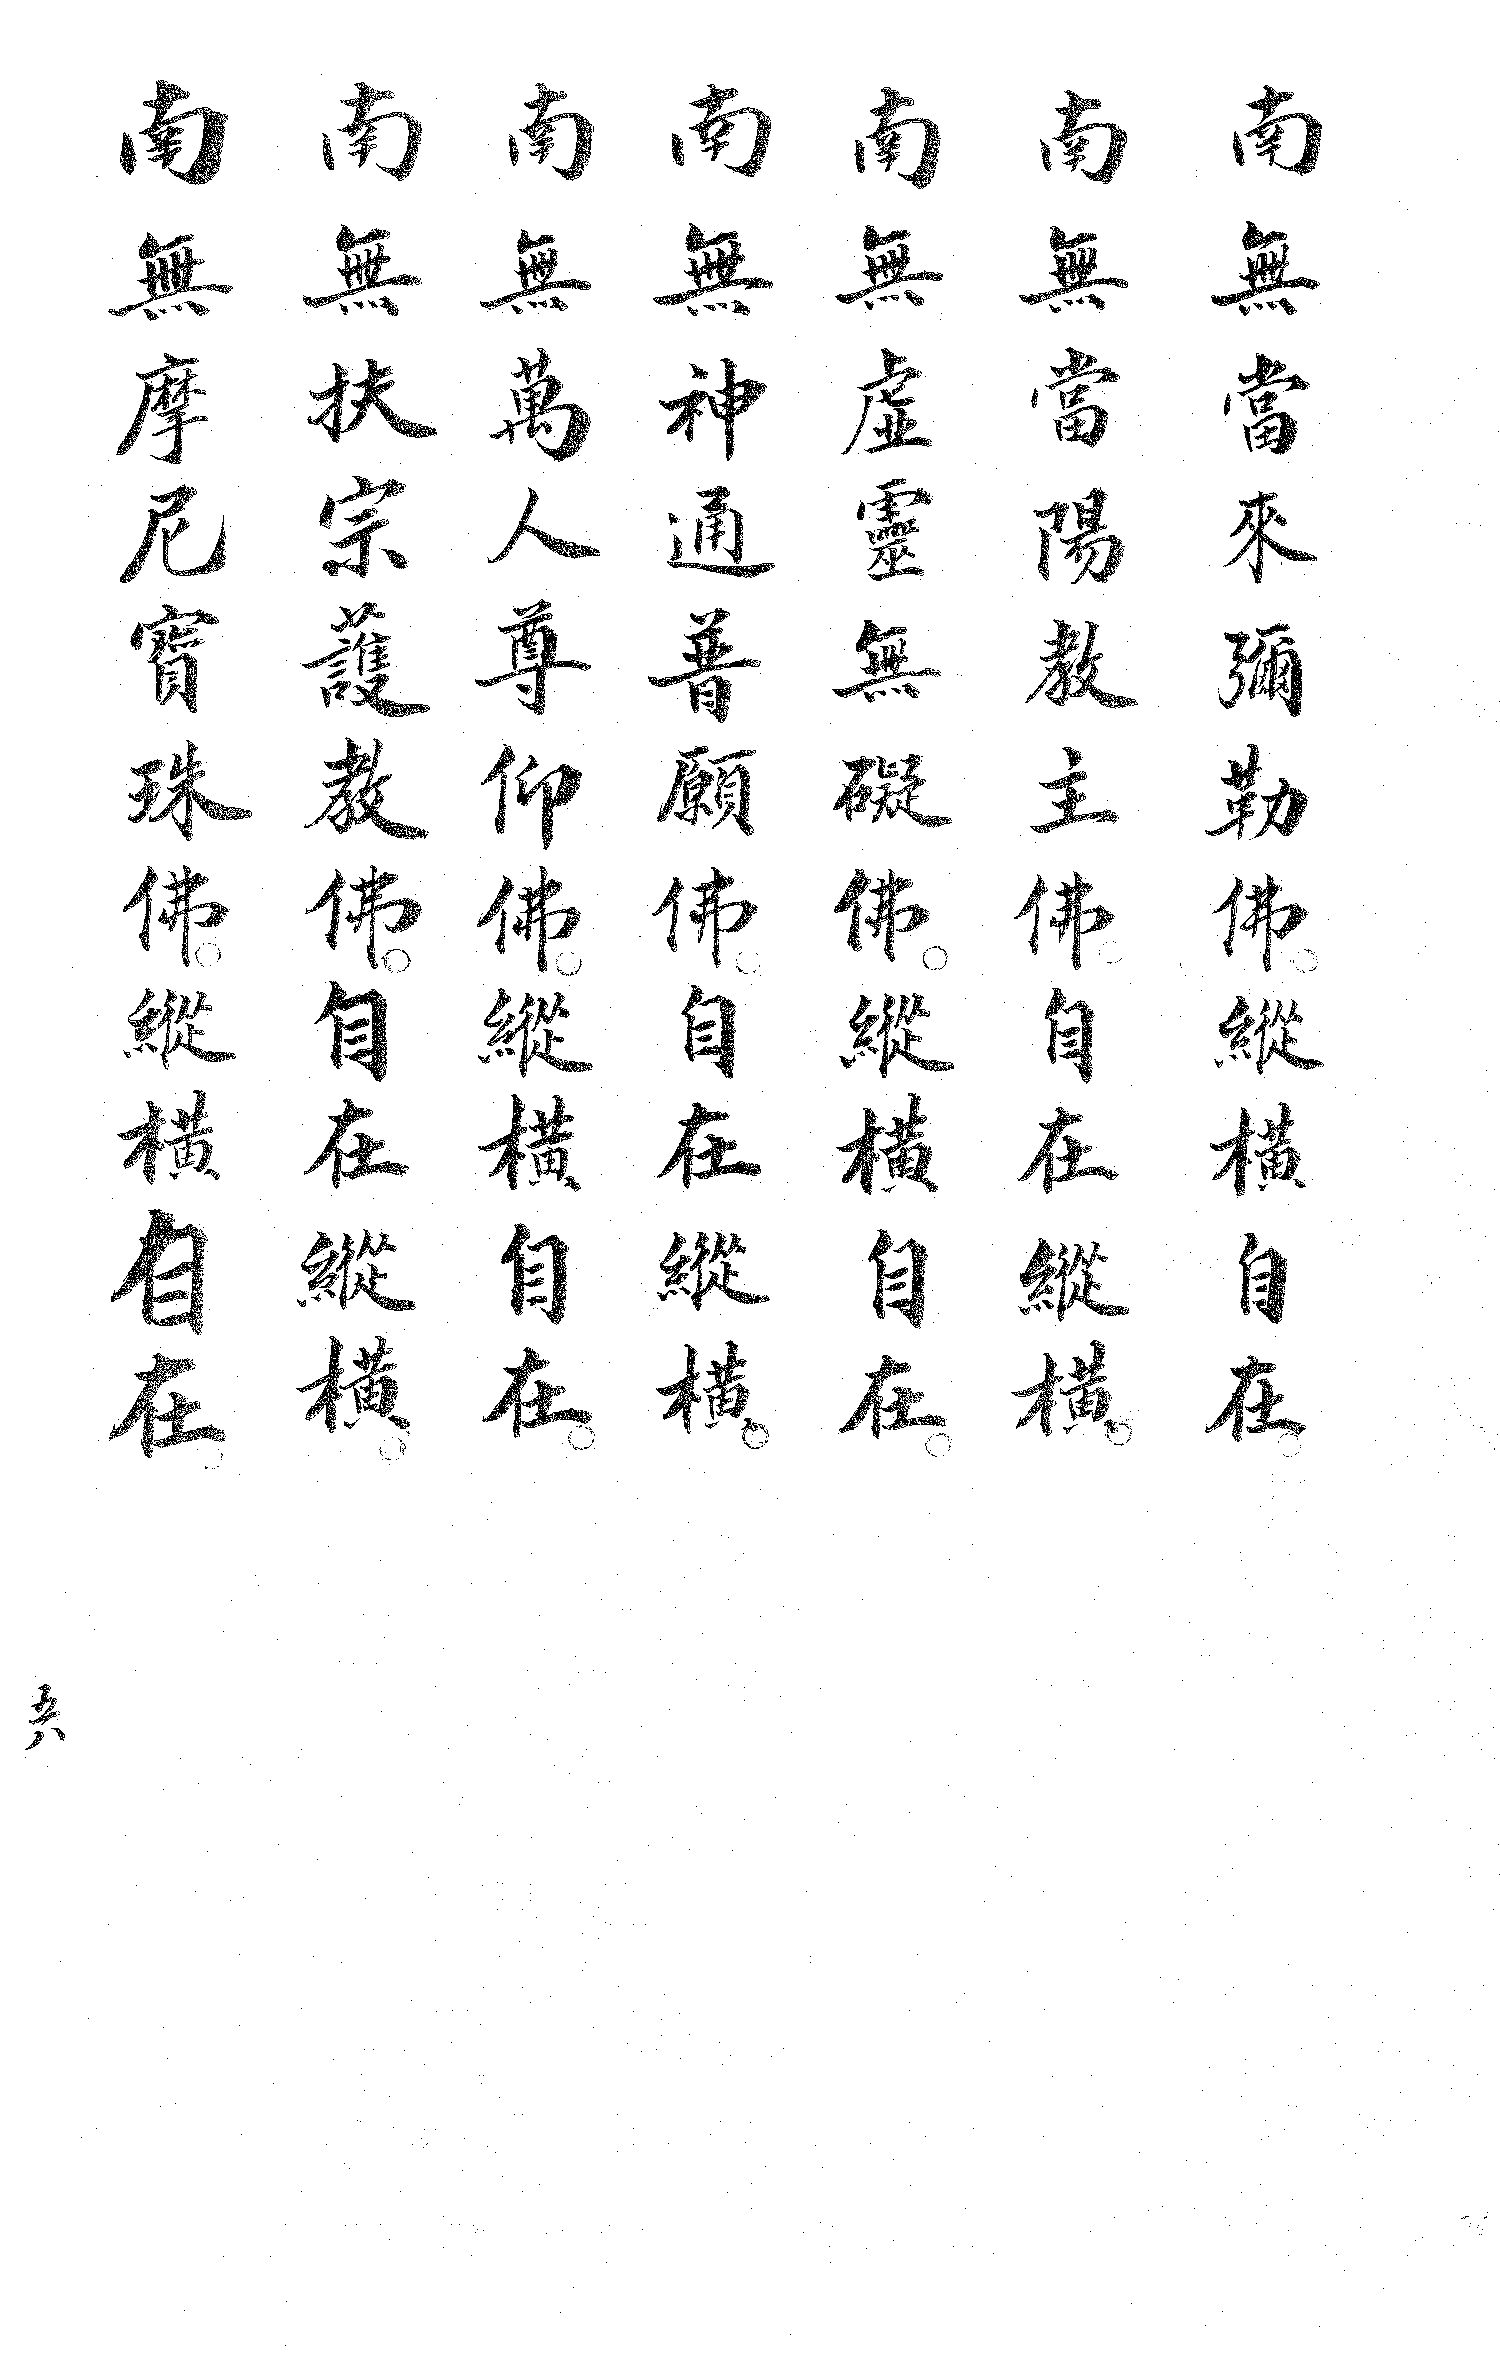 南無當來彌勒佛。縱橫自在。
南無當陽教主佛。自在縱橫。
南無虛靈無礙佛。縱橫自在。
南無神通普願佛。自在縱橫。
南無萬人尊仰佛。縱橫自在。
南無扶宗護教佛。自在縱橫。
南無摩尼寶珠佛。縱橫自在。
五六